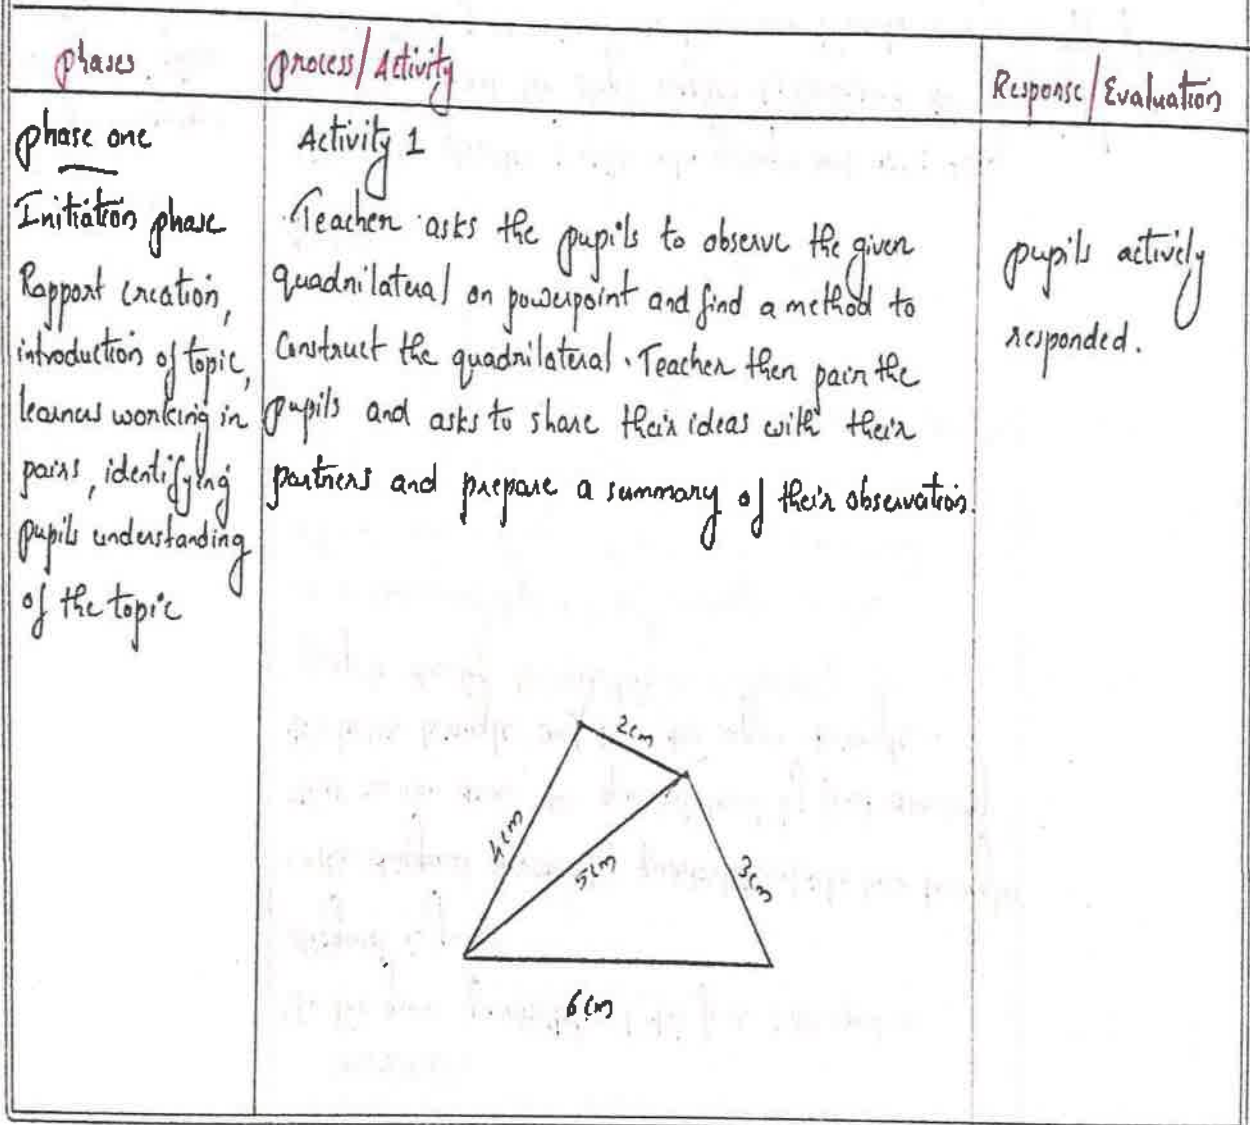 phases
process/Activity
Response/Evaluation
phase one
Initiation phase
Rapport creation,
introduction of topic,
learners working in
pairs, identifying
pupils understanding
of the topic
Activity 1
Teacher asks the pupils to observe the given
quadrilateral on powerpoint and find a method to
Construct the quadrilateral. Teacher then pair the
pupils and asks to share their ideas with their
partners and prepare a summary of their observation.
2cm
4cm
5cm
3cm
6cm
pupils actively
responded.